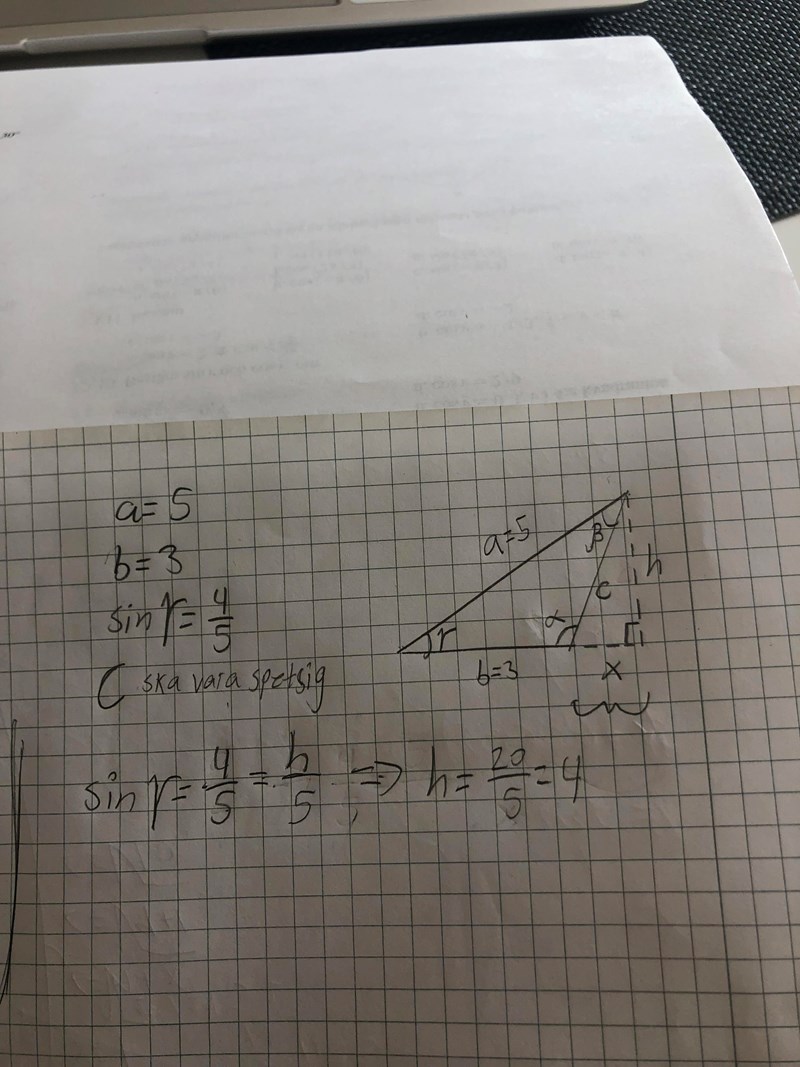 30°
a = 5
b = 3
sin γ = 4/5
C ska vara spetsig
a=5
β
h
c
γ
α
b=3
x
sin γ = 4/5 = h/5 ⇒ h = 20/5 = 4